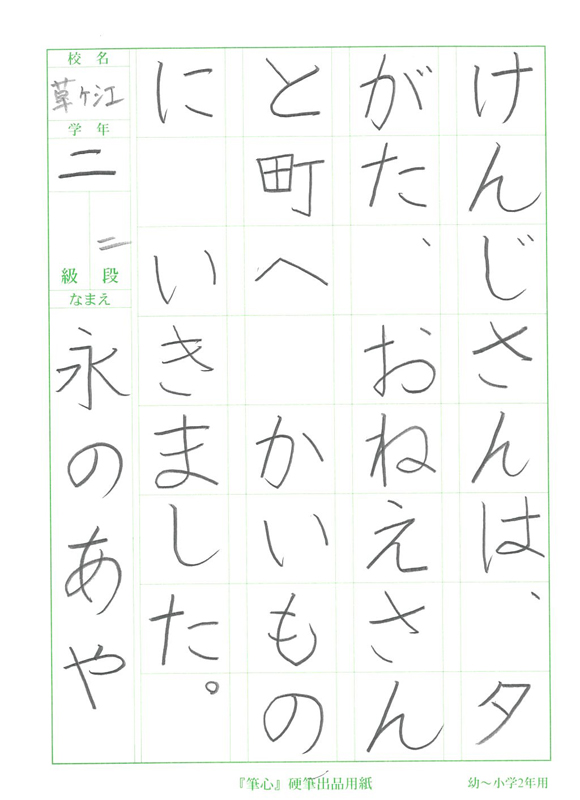 けんじさんは、夕
がた、おねえさん
と町へ かいもの
に いきました。
校名
草ヶ江
学年
二
段 二
級
なまえ
永のあや
『筆心』硬筆出品用紙
幼～小学2年用